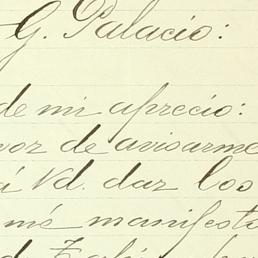 G. Palacio:
de mi aprecio:
vor de avisarme
á Vd. dar los
mé manifesta